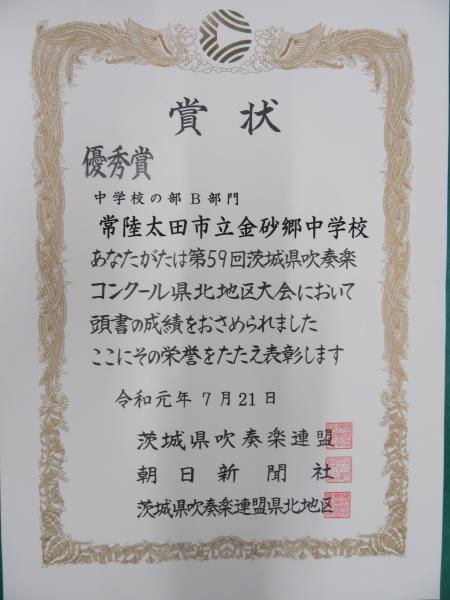 賞状
優秀賞
中学校の部 B部門
常陸太田市立金砂郷中学校
あなたがたは第59回茨城県吹奏楽
コンクール県北地区大会において
頭書の成績をおさめられました
ここにその栄誉をたたえ表彰します
令和元年7月21日
茨城県吹奏楽連盟
朝日新聞社
茨城県吹奏楽連盟県北地区